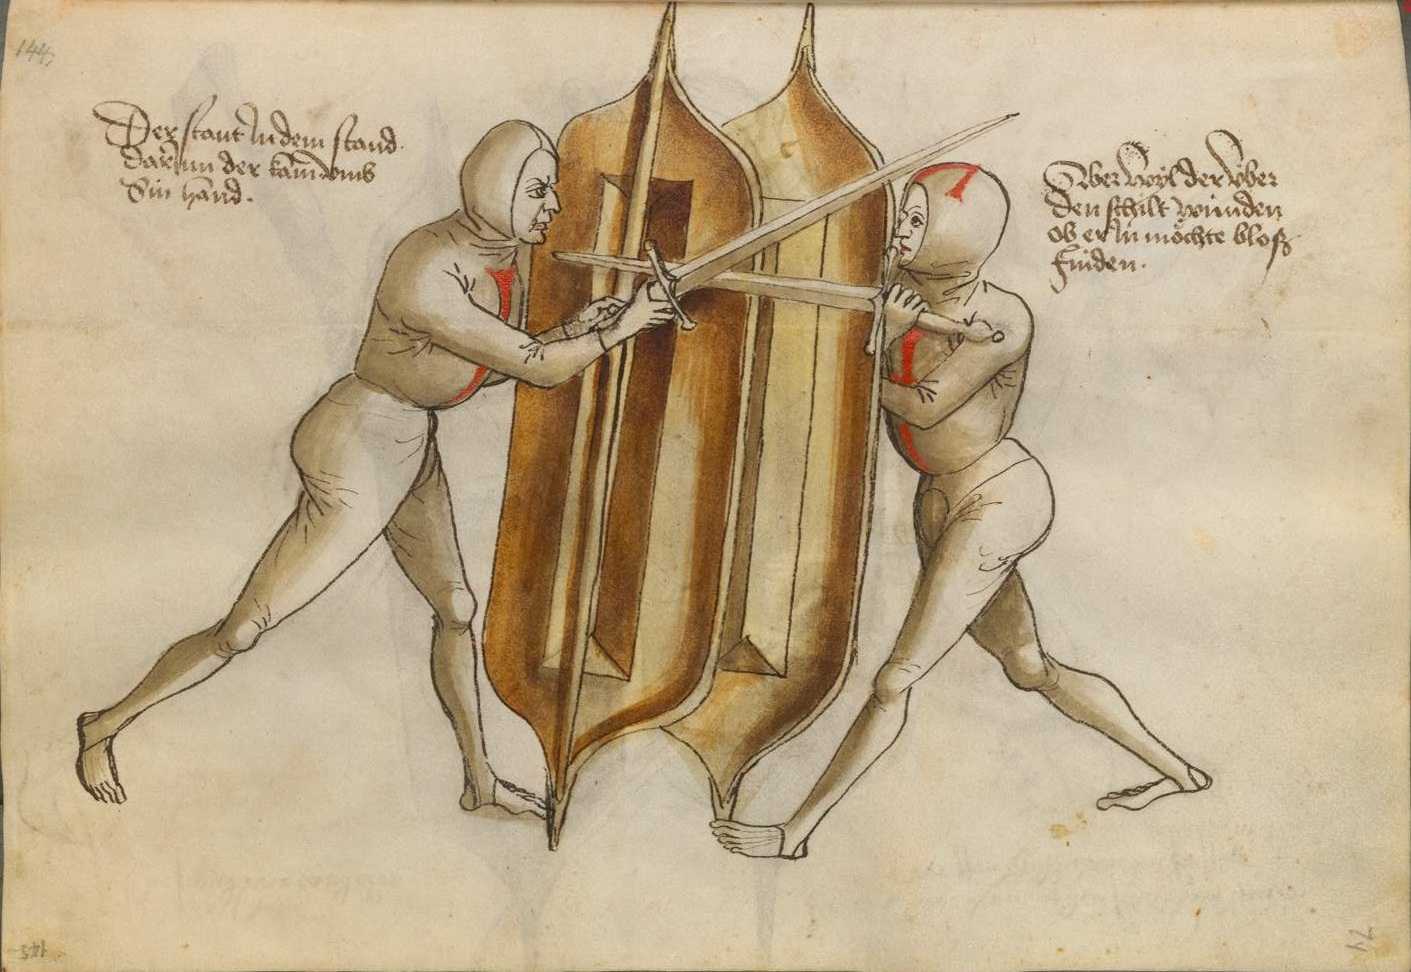 144
Der staut In dem stand
dar Inn der kam̄ vmb
Sin hand.
Aber wyl der vber
den schilt wunden
ob er In möchte bloß
finden.